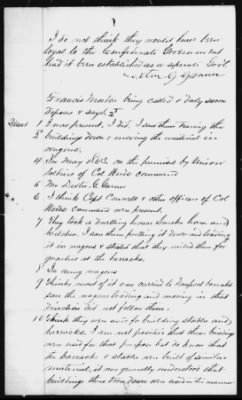 I do not think they would have been
loyal to the Confederate Government
had it been established as a seperate Gov't
Francis Meador being called & duly sworn
Deposes & says
I was present, I did, I saw them tearing the
buildings down & moving the material in
wagons
4 In May 1863, on the premises by Union
soldiers of Col command
5 Mr Lester G.
6 I think Capt & other officers of Col
command were present,
7 They took a dwelling house smoke house and
kitchen, I saw them pulling it down and loading
it in wagons & stated that they wanted them for
quarters at the barracks
8 In army wagons
9 I think most of it was carried to barracks
saw the wagons loading and moving in that
direction did not follow them.
10 I think they were used for building stables and
barracks, I am not positive that these buildings
were used for that purpose but do know that
the barracks & stables are built of similar
material, it was generally understood that
buildings thus torn down were used in the manner